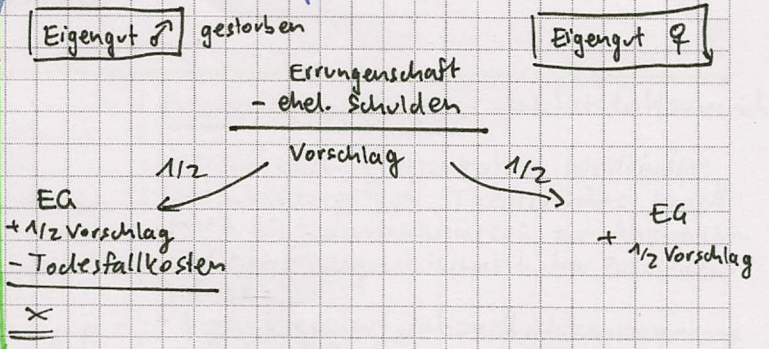 Eigengut ♂ gestorben
Eigengut ♀
Errungenschaft
- ehel. Schulden
Vorschlag
1/2
1/2
EG
+ 1/2 Vorschlag
- Todesfallkosten
x
EG
+ 1/2 Vorschlag